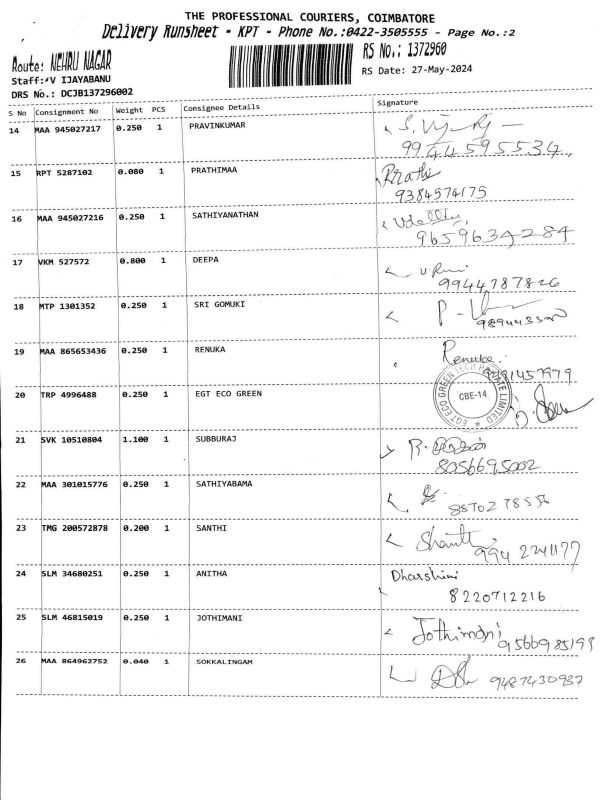 THE PROFESSIONAL COURIERS, COIMBATORE
Delivery Runsheet - KPT - Phone No.:0422-3505555 - Page No.:2
Route: NEHRU NAGAR
RS No.: 1372960
Staff:V IJAYABANU
RS Date: 27-May-2024
DRS No.: DCJB137296002
S No Consignment No Weight PCS Consignee Details Signature
14 MAA 945027217 0.250 1 PRAVINKUMAR
9944595534
15 RPT 5287102 0.080 1 PRATHIMAA Prathi
9384574175
16 MAA 945027216 0.250 1 SATHIYANATHAN
9659634284
17 VKM 527572 0.800 1 DEEPA
9944787826
18 MTP 1301352 0.250 1 SRI GOMUKI
19 MAA 865653436 0.250 1 RENUKA Renuka
20 TRP 4996488 0.250 1 EGT ECO GREEN
EGT ECO GREEN TECH PRIVATE LIMITED
CBE-14
21 SVK 10510804 1.100 1 SUBBURAJ
8056695002
22 MAA 301015776 0.250 1 SATHIYABAMA
23 TMG 200572878 0.200 1 SANTHI Shanthi
994 2241177
24 SLM 34680251 0.250 1 ANITHA Dharshini
8220712216
25 SLM 46815019 0.250 1 JOTHIMANI Jothimani
9566985199
26 MAA 864962752 0.040 1 SOKKALINGAM
9487430937